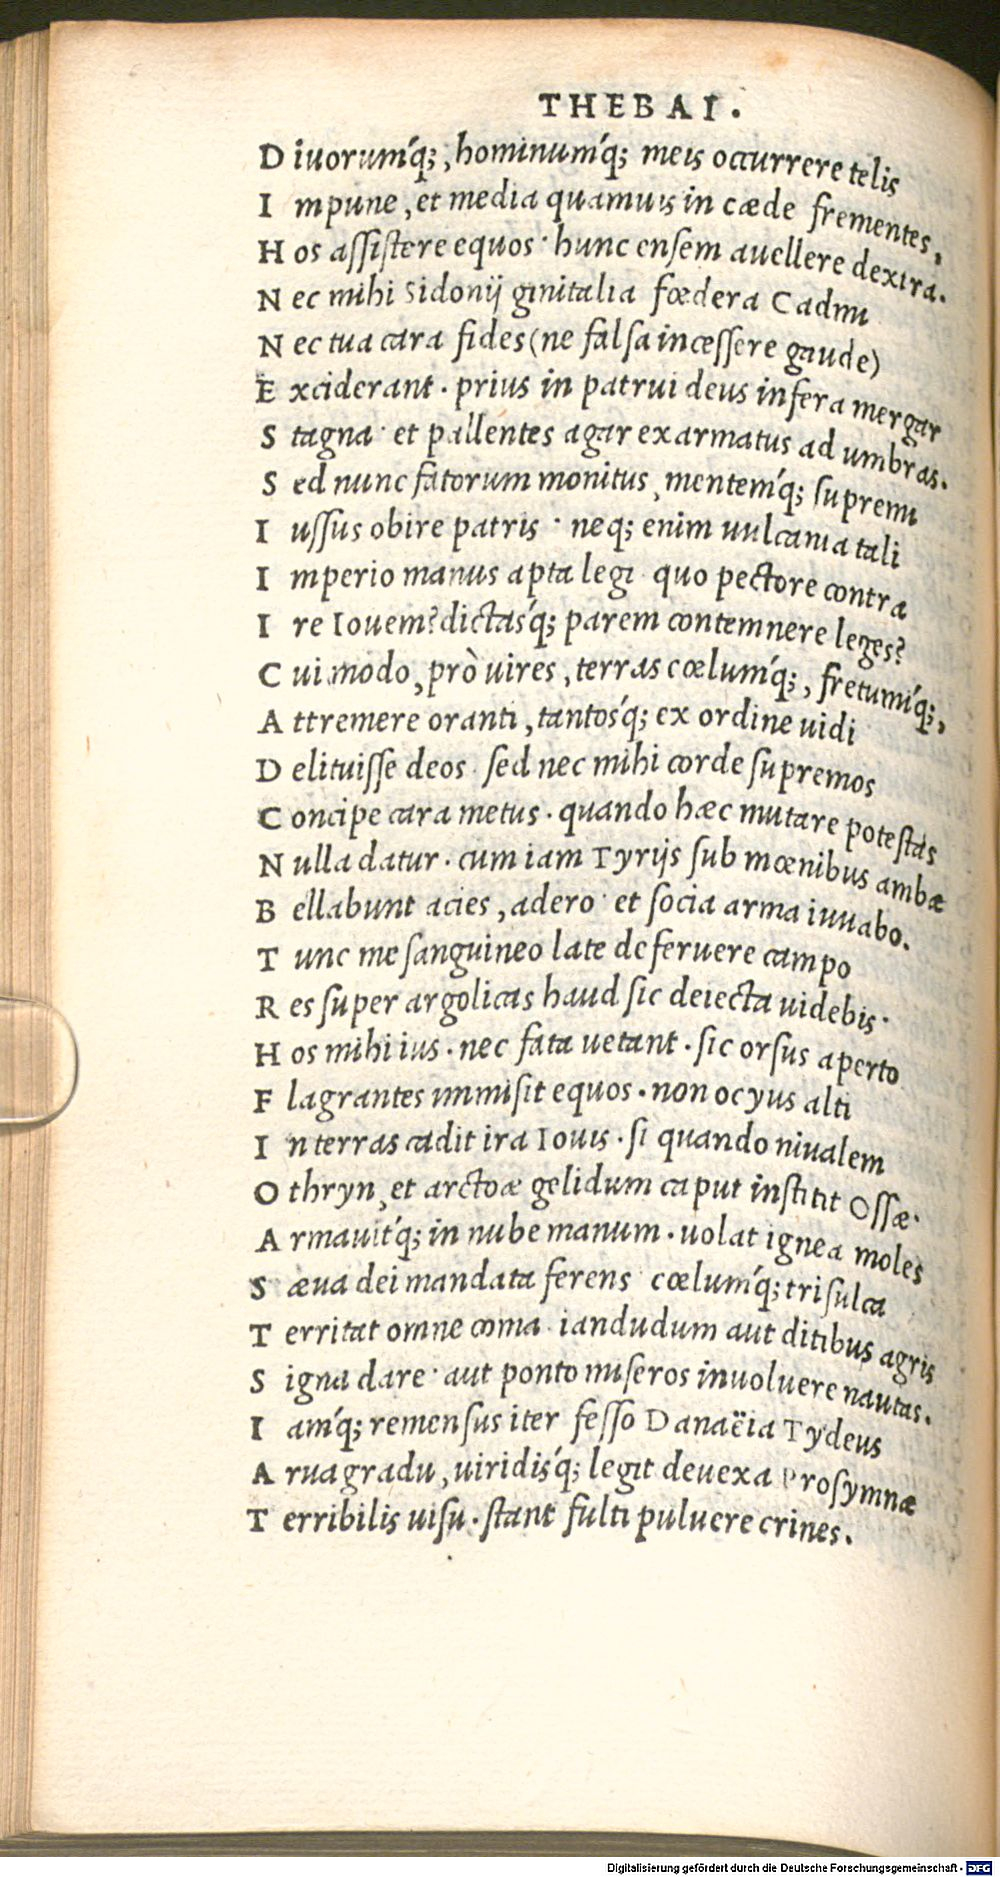 THEBAI.
D iuorumq́;, hominumq́; meis occurrere telis
I mpune, et media quamuis in cæde frementes,
H os assistere equos· hunc ensem auellere dextra.
N ec mihi Sidonij ginitalia fœdera Cadmi
N ec tua cara fides (ne falsa incessere gaude)
E xciderant. prius in patrui deus infera mergar
S tagna· et pallentes agar exarmatus ad umbras.
S ed nunc fatorum monitus, mentemq́; supremi
I ussus obire patris· neq; enim uulcania tali
I mperio manus apta legi· quo pectore contra
I re Iouem? dictasq́; parem contemnere leges?
C ui modo, prò uires, terras cœlumq́;, fretumq́;,
A ttremere oranti, tantosq́; ex ordine uidi
D elituisse deos· sed nec mihi corde supremos
C oncipe cara metus. quando hæc mutare potestas
N ulla datur. cum iam Tyrijs sub mœnibus ambæ
B ellabunt acies, adero· et socia arma iuuabo.
T unc me sanguineo late deferuere campo
R es super argolicas haud sic deiecta uidebis·
H os mihi ius. nec fata uetant. sic orsus aperto
F lagrantes immisit equos. non ocyus alti
I n terras cadit ira Iouis. si quando niualem
O thryn, et arctoæ gelidum caput institit Ossæ·
A rmauitq́; in nube manum. uolat ignea moles
S æua dei mandata ferens cœlumq́; trisulca
T erritat omne coma· iandudum aut ditibus agris
S igna dare· aut ponto miseros inuoluere nautas.
I amq́; remensus iter fesso Danaëia Tydeus
A rua gradu, uiridisq́; legit deuexa Prosymnæ
T erribilis uisu. stant fulti puluere crines.
Digitalisierung gefördert durch die Deutsche Forschungsgemeinschaft - DFG